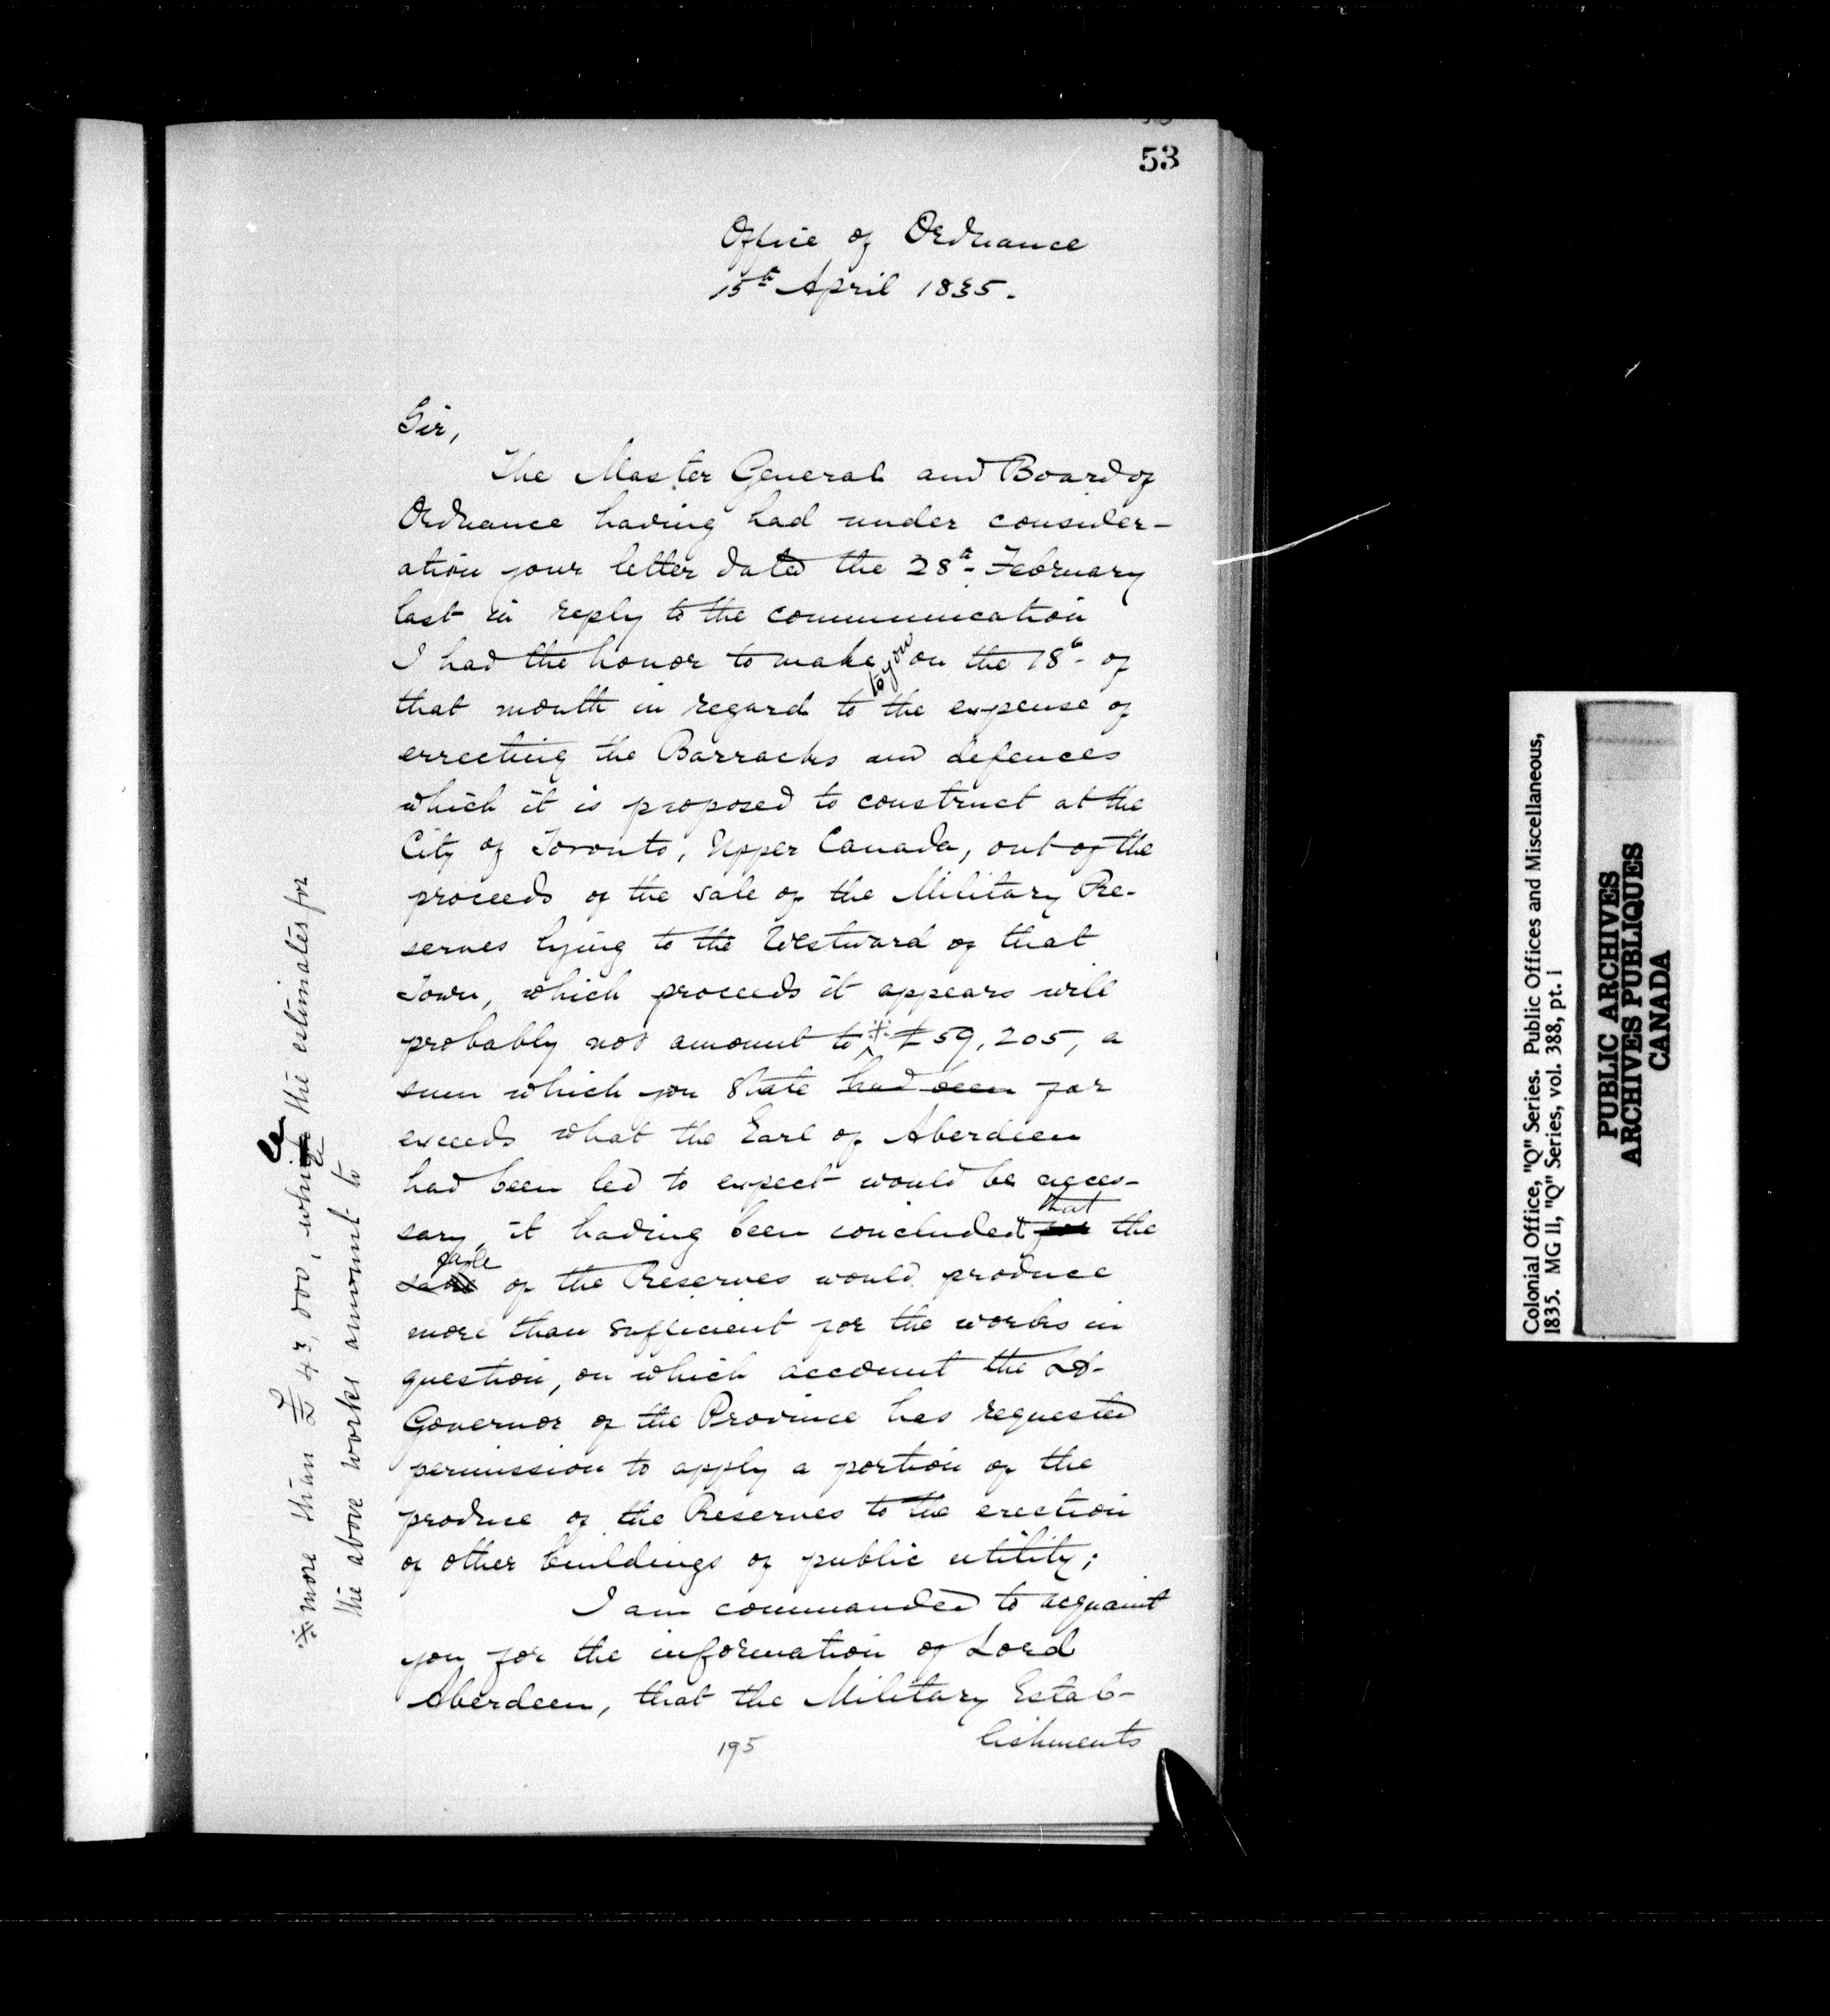 53
Office of Ordnance
15th April 1835.
Sir,
The Master General and Board of
Ordnance having had under consider-
ation your letter dated the 28th February
last in reply to the communication
I had the honor to make to you on the 18th of
that month in regard to the expense of
errecting the Barracks and defences
which it is proposed to construct at the
City of Toronto, Upper Canada, out of the
proceeds of the sale of the Military Re-
serves lying to the Westward of that
Town, which proceeds it appears will
probably not amount to ※ £59,205, a
sum which you state had been far
exceeds what the Earl of Aberdeen
had been led to expect would be neces-
sary, it having been concluded that the
sale of the Reserves would produce
more than sufficient for the works in
question, on which account the Lt-
Governor of the Province has requested
permission to apply a portion of the
produce of the Reserves to the erection
of other buildings of public utility;
I am commanded to acquaint
you for the information of Lord
Aberdeen, that the Military Estab-
lishments
195
※ more than £43,000, while the estimates for
the above works amount to
Colonial Office, "Q" Series. Public Offices and Miscellaneous,
1835. MG 11, "Q" Series, vol. 388, pt. 1
PUBLIC ARCHIVES
ARCHIVES PUBLIQUES
CANADA